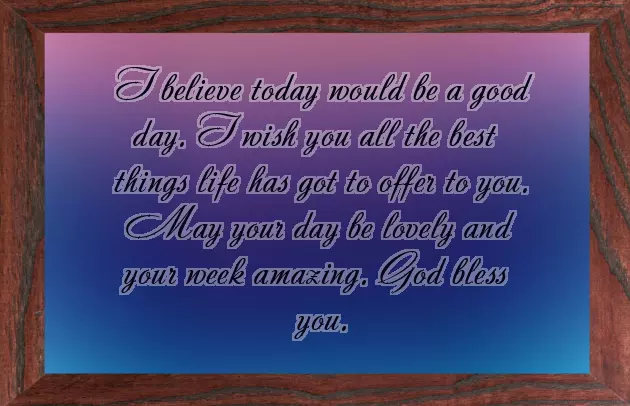 I believe today would be a good
day. I wish you all the best
things life has got to offer to you.
May your day be lovely and
your week amazing. God bless
you.